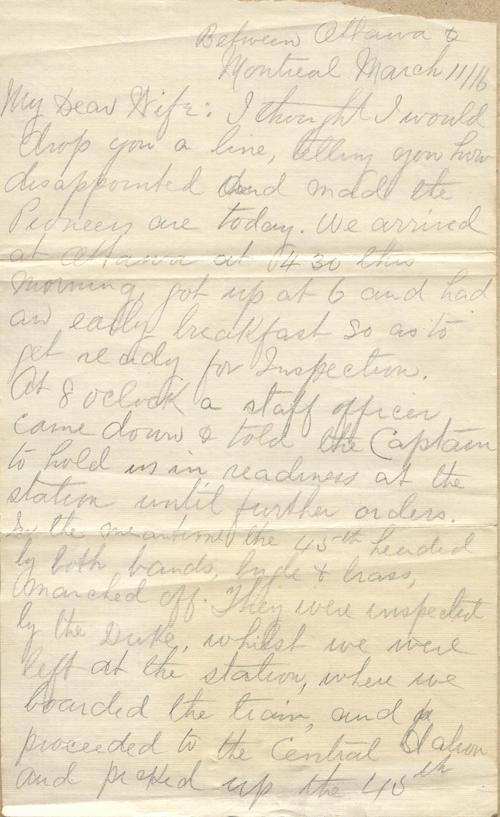 Between Ottawa &
Montreal March 11/16
My Dear Wife: I thought I would
drop you a line, telling you how
disappointed and mad the
Pioneers are today. We arrived
at Ottawa at 4 30 this
morning, got up at 6 and had
an early breakfast so as to
get ready for Inspection.
At 8 oclock a staff officer
came down & told the Captain
to hold us in readiness at the
station until further orders.
In the meantime the 45th headed
by both bands, bugle & brass,
marched off. They were inspected
by the Duke, whilst we were
left at the station, where we
boarded the train, and
proceeded to the Central Station
and picked up the 45th